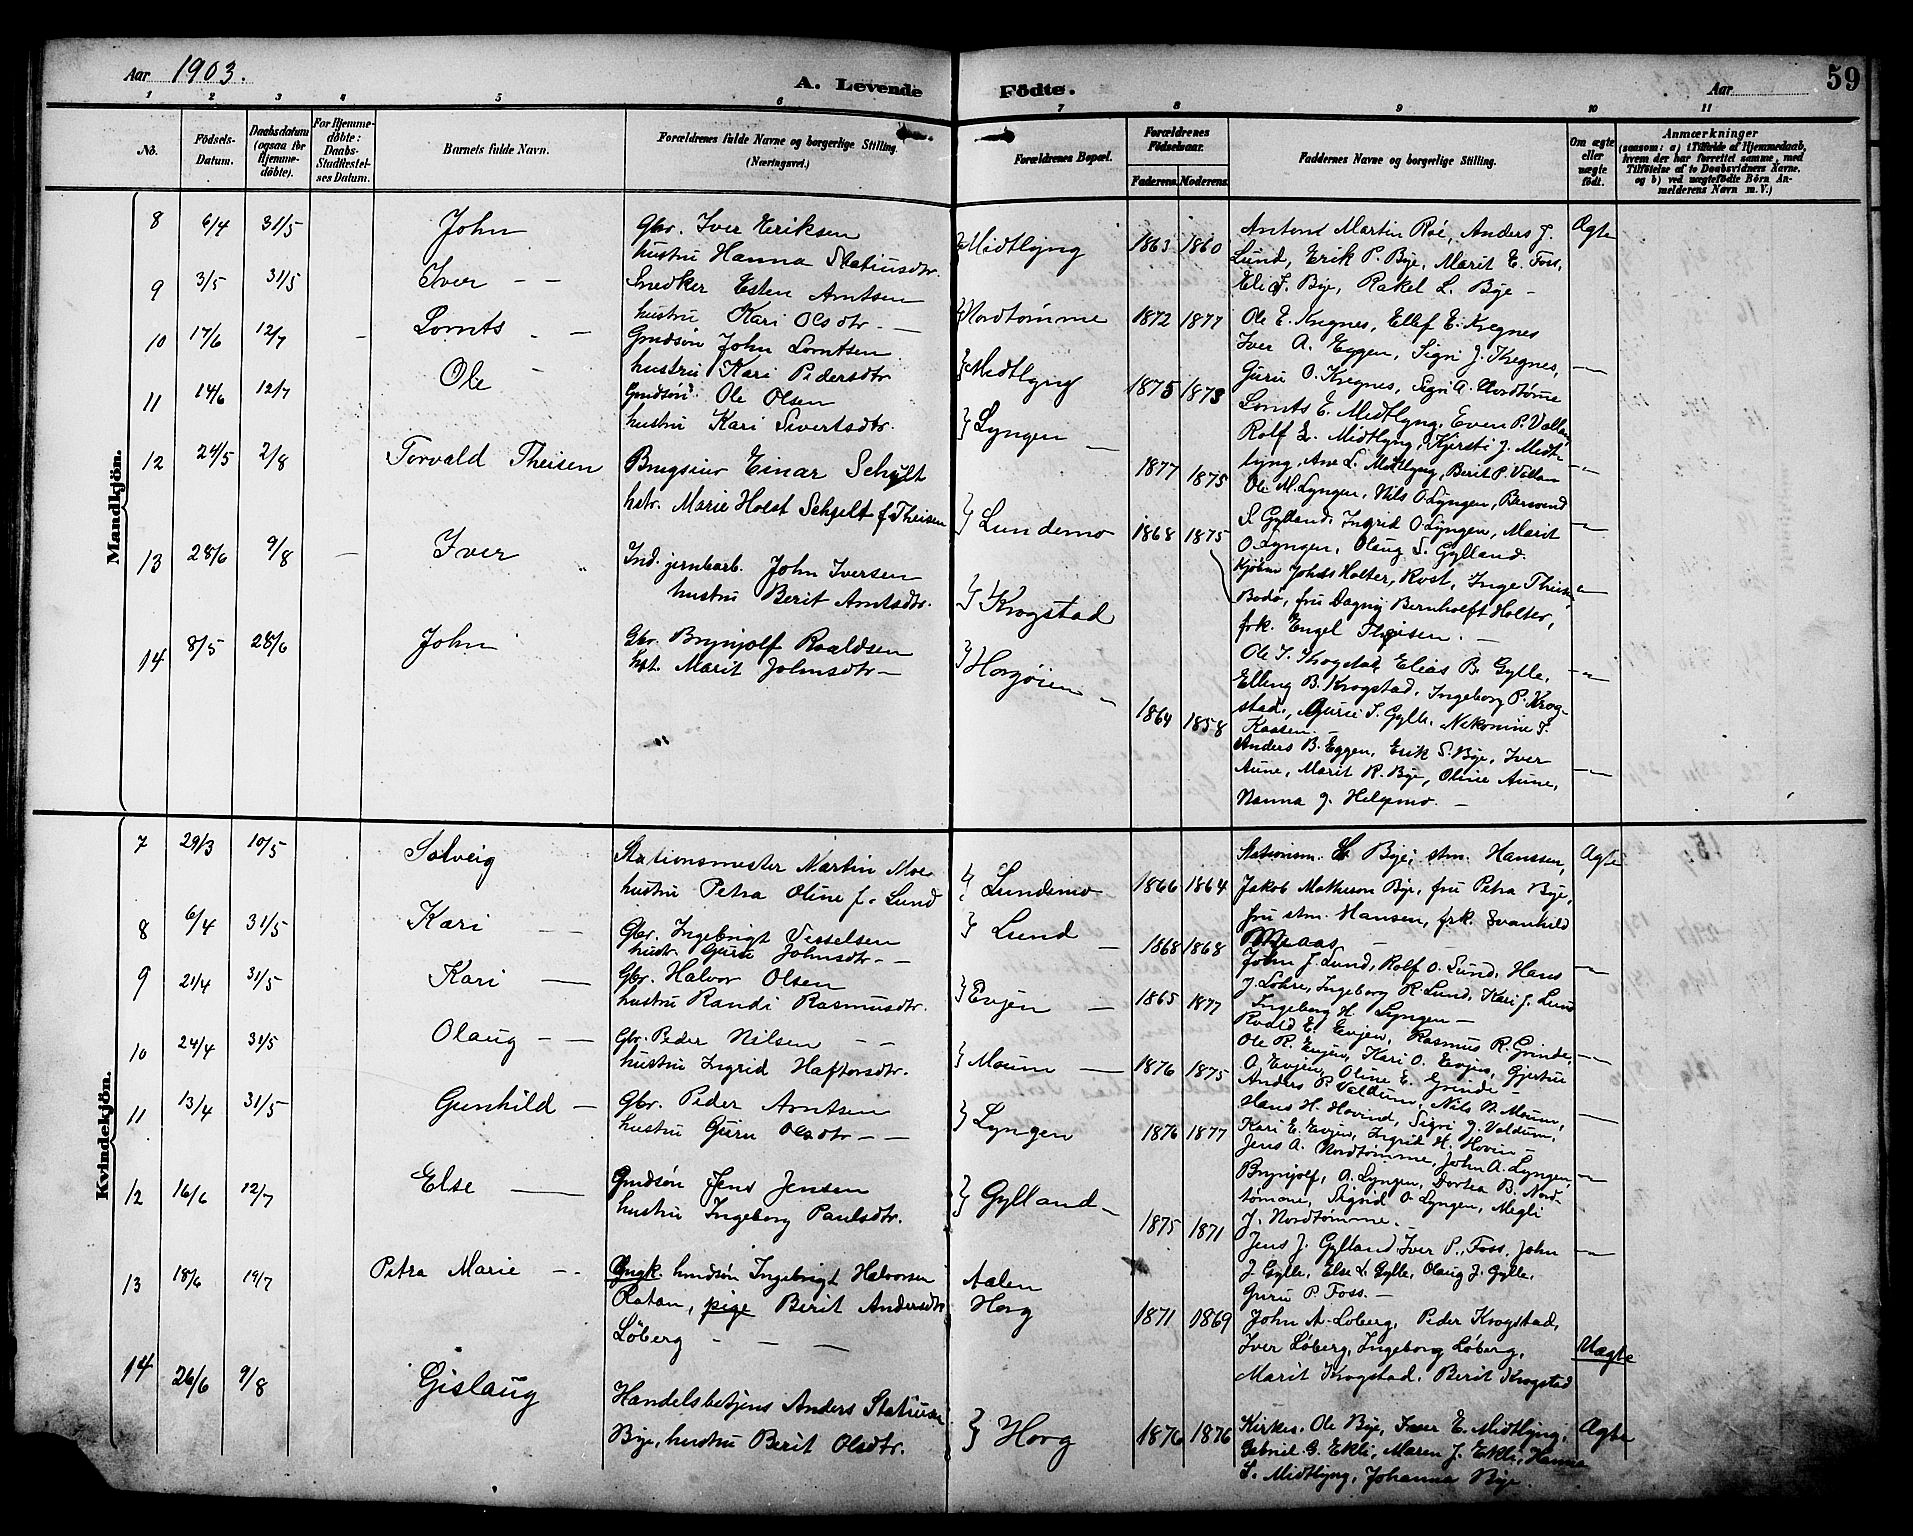 Aar 1903.
A. Levende Födte.
Aar
59
1 2 3 4 5 6 7 8 9 10 11
No.
Födsels-Datum.
Daabsdatum (ogsaa for Hjemme-döbte).
For Hjemme-döbte: Daabs-Stadfæstel-ses Datum.
Barnets fulde Navn.
Forældrenes fulde Navne og borgerlige Stilling. (Næringsvei.)
Forældrenes Bopæl.
Forældrenes Födselsaar.
Faderens. Moderens.
Faddernes Navne og borgerlige Stilling.
Om ægte eller uægte födt.
Anmærkninger
(saasom: a) i Tilfælde af Hjemmedaab, hvem der har forrettet samme, med Tilföielse af to Daabsvidners Navne, og b) ved uægtefödte Börn An-melderens Navn m. V.)
Mandkjön.
8 6/4 31/5 John Gbr. Iver Eriksen
hustru Hanna Statiusdtr. Midtlyng 1863 1860
Anton Martin Roé, Anders J.
Lund, Erik P. Bye, Marit E. Foss,
Eli J. Bye, Rakel L. Bye - Ægte
9 3/5 31/5 Iver - - Snedker Esten Arntsen
hustru Kari Olsdtr. - Nordtømme 1872 1877
Ole E. Kregnes, Ellef E. Kregnes
Iver A. Eggen, Sigri J. Kregnes,
Guru O. Kregnes, Sigri A. Nordtømme - " -
10 17/6 12/7 - Lornts - Gmdsøn John Lorntsen
hustru Kari Pedersdtr. Midtlyng 1875 1873
Lornts E. Midtlyng, Even P. Vollan,
Rolf L. Midtlyng, Kjersti J. Midt-
lyng, Ane L. Midtlyng, Berit P. Vollan - " -
11 14/6 12/7 Ole - Gmdsøn Ole Olsen
hustru Kari Sivertsdtr. Lyngen - 1877 1875
Ole M. Lyngen, Nils O. Lyngen, Barvend
S. Gylland, Ingrid O. Lyngen, Marit
O. Lyngen, Olaug S. Gylland. - " -
12 24/5 2/8 Torvald Theisen Brugseier Einar Schjelt
hstr. Marie Holst Schjelt f. Theisen Lundemo 1868 1875
Kjøbm. Johs Holter, Rost, Inge Theisen,
Bodø, fru Dagny Bernhoft Holter,
frk. Engel Theisen. - - " -
13 28/6 9/8 - Iver Ind. jernbarb. John Iversen
hustru Berit Arntsdtr. Krogstad
Ole I. Krogstad, Elias B. Gylle,
Elling B. Krogstad, Ingeborg P. Krog-
stad, Gurie S. Gylle, Nekoline T.
Kaasen - - " -
14 8/5 28/6 John Gbr. Brynjolf Roaldsen
hst. Marit Johnsdtr - Horgøien - 1864 1858
Anders B. Eggen, Erik S. Bye, Iver
Aune, Marit R. Bye, Oline Aune,
Nanna J. Helgemo. - - " -
Kvindekjön.
7 29/3 10/5 Solveig Stationsmester Martin Moe
hustru Petra Oline f. Lund Lundemo 1866 1864
Stationsm. Bye, stm. Hanssen,
Jakob Matheson Bye, fru Petra Bye,
fru stm. Hansen, frk. Svanhild
Meaas - Ægte
8 6/4 31/5 Kari - Gbr. Ingebrigt Vesselsen
hustr. Guru Johnsdtr. - Lund - 1868 1868
John J. Lund, Rolf O. Lund, Hans
J. Lohre, Ingeborg R. Lund, Kari J. Lund
Ingeborg H. Lyngen - - " -
9 21/4 31/5 Kari - Gbr. Halvor Olsen
hustru Randi Rasmusdtr. Evjen - 1865 1877
Roald E. Evjen, Rasmus R. Grinde,
Ole R. Evjen, Kari O. Evjen, Gjertru
O. Evjen, Oline E. Grinde - - " -
10 24/4 31/5 Olaug - - Gbr. Peder Nilsen - -
hustru Ingrid Haftorsdtr. Moum - 1876 1875
Anders P. Valdum, Nils N. Moum,
Hans H. Hovind, Sigri J. Valdum,
Kari E. Evjen, Ingrid H. Hovin - - " -
11 13/4 31/5 Gunhild - Gbr. Peder Arntsen
hustru Guru Olsdtr - - Lyngen 1876 1877
Jens A. Nordtømme, John A. Lyngen,
Brynjolf, A. Lyngen, Dortea B. Nord-
tømme, Sigrid O. Lyngen, Megli
J. Nordtømme. - - " -
12 16/6 12/7 Else - Gmdsøn Jens Jensen
hustru Ingeborg Paulsdtr. Gylland - 1875 1871
Jens J. Gylland, Iver P. Foss, John
J. Gylle, Else L. Gylle, Olaug J. Gylle,
Guru P. Foss. - - " -
13 18/6 19/7 Petra Marie - - Ungk. Gmdsøn Ingebrigt Halvorsen
Ratan, pige Berit Andersdtr
Løberg - - Aalen
Horg 1871 1869
John A. Løberg, Peder Krogstad,
Iver Løberg, Ingeborg Løberg,
Marit Krogstad, Berit Krogstad Uægte
14 26/6 9/8 Gislaug Handelsbetjent Anders Statiusen
Bye, hustru Berit Olsdtr. Horg 1876 1876
Kirkes. Ole Bye, Iver E. Midtlyng,
Gabriel G. Ekli, Maren J. Ekli, Hanna
S. Midtlyng, Johanna Bye. Ægte